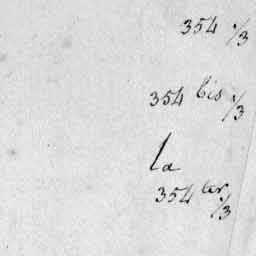 354 ./3
354 bis ./3
la
354 ter ./3